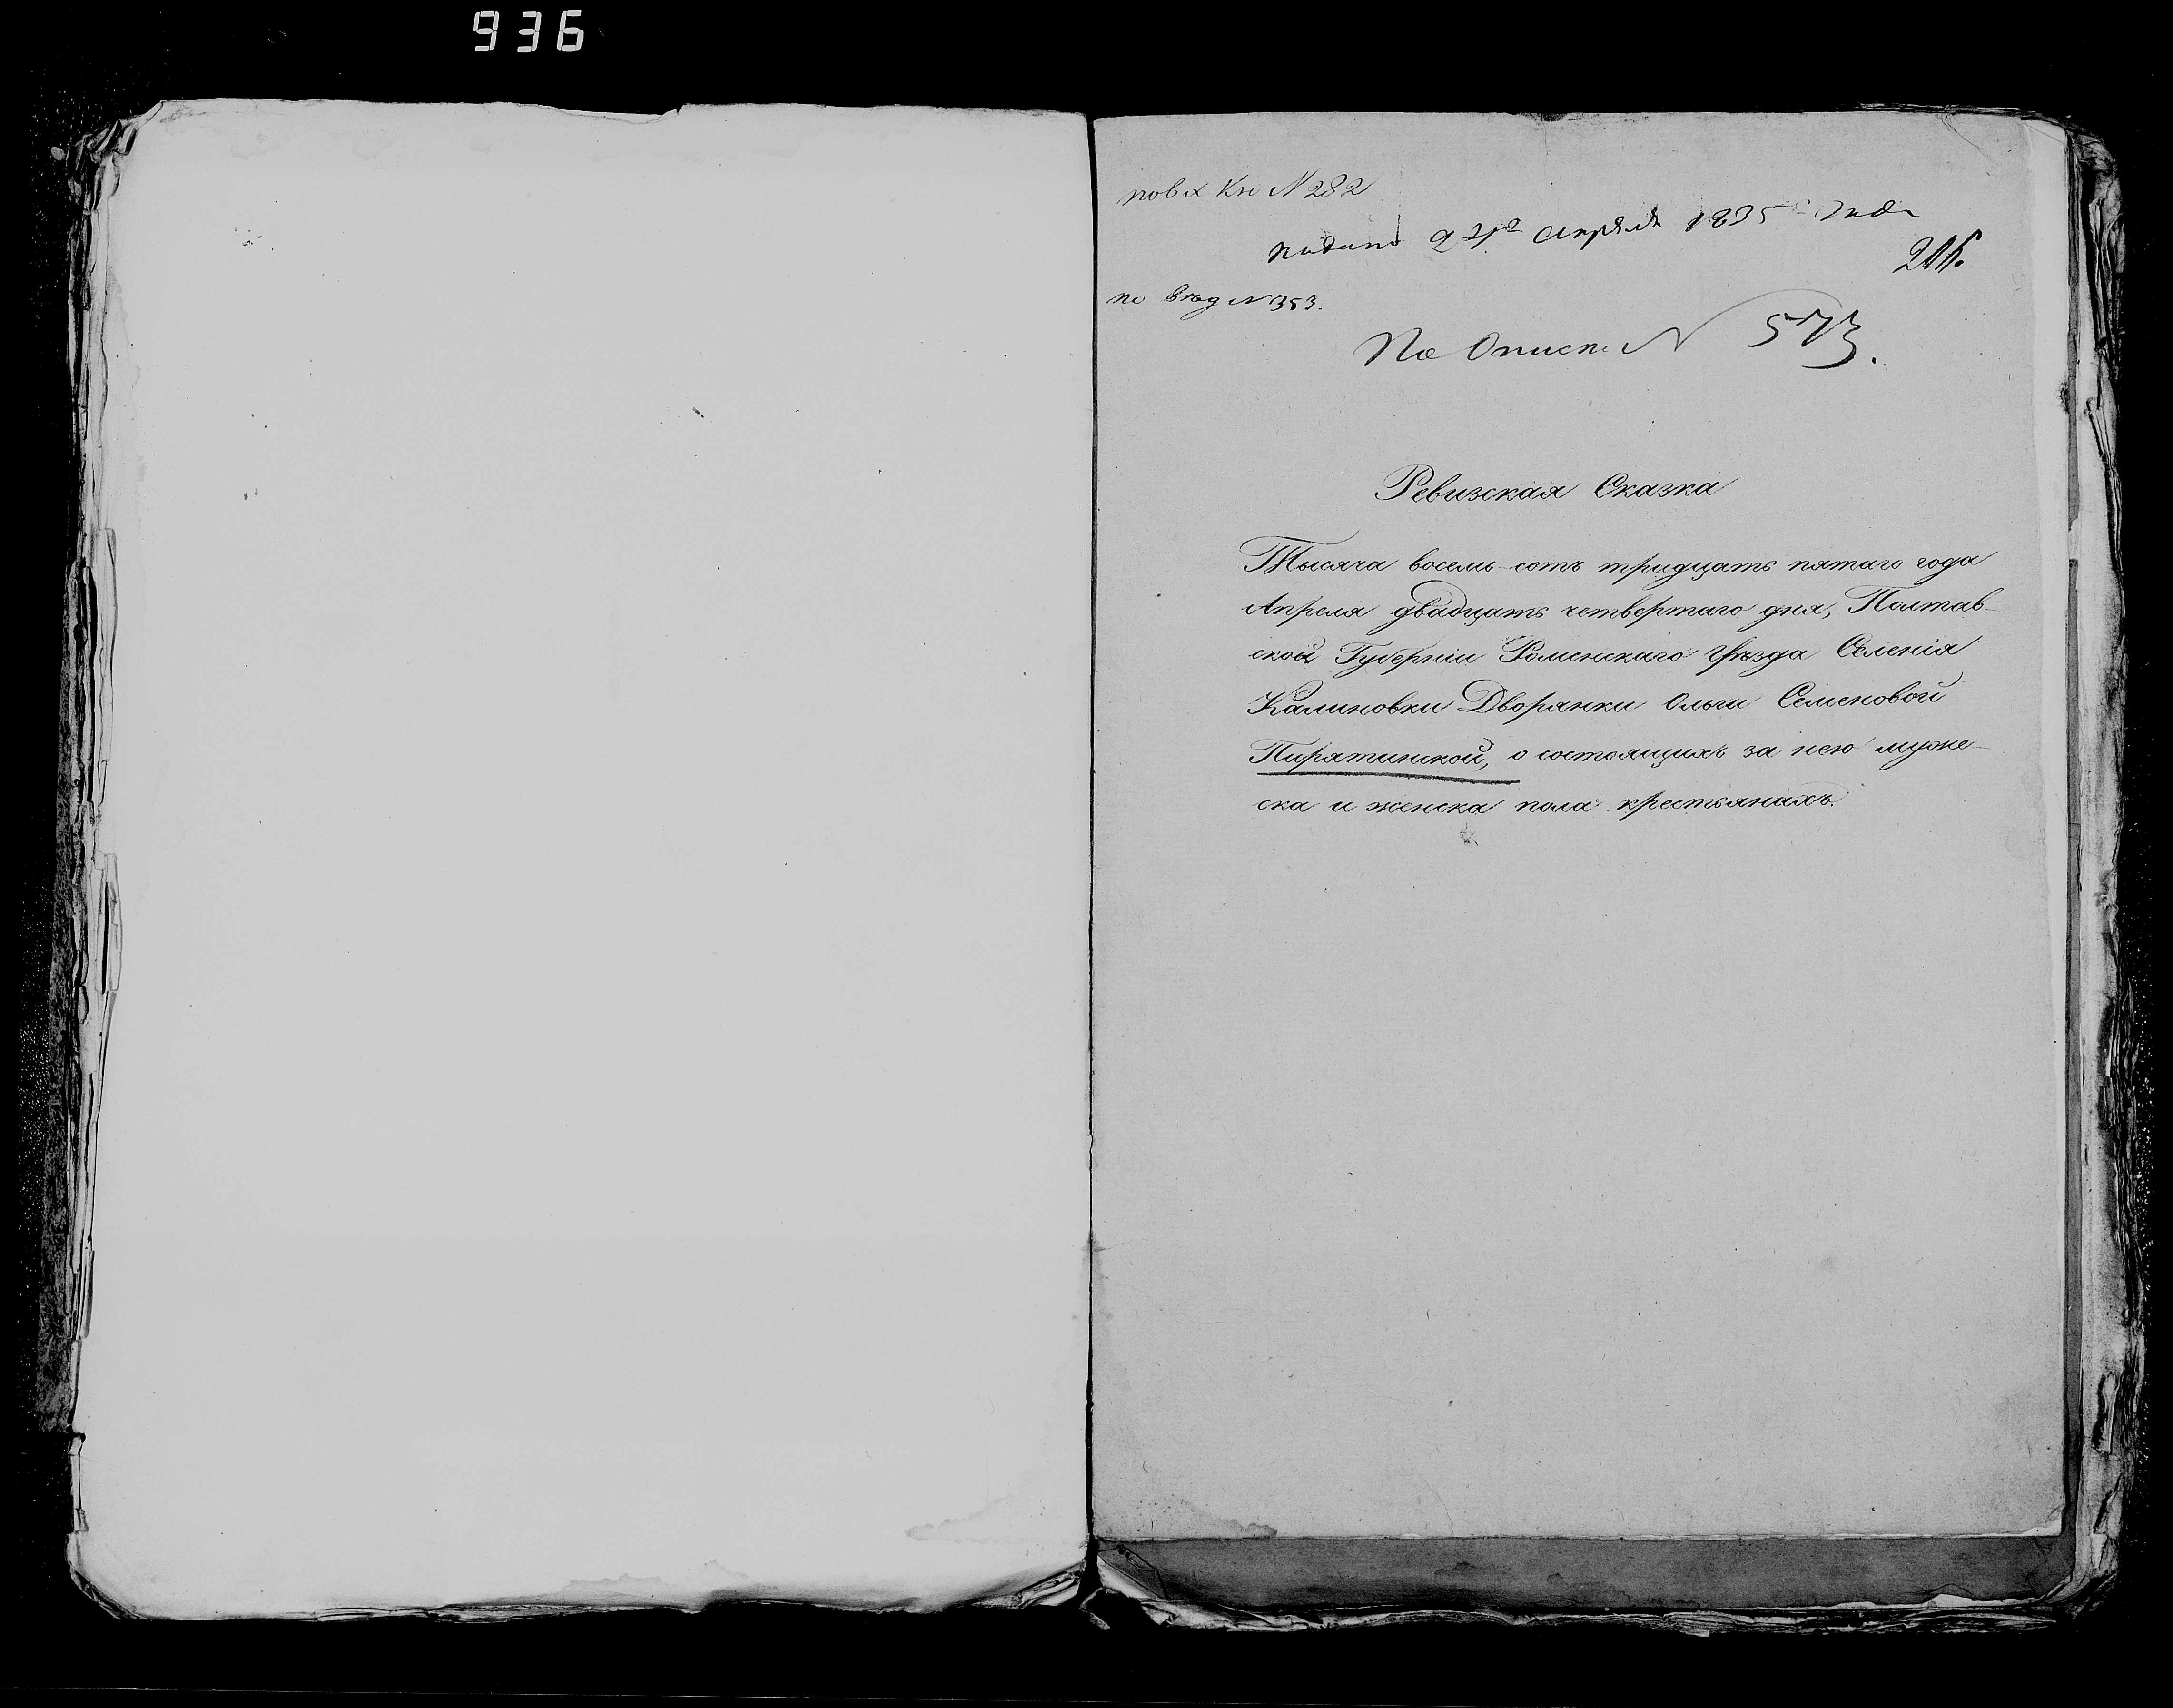 936
по вх Кн N 282
подана 24го апреля 1835 года
по вѣд N 353.
По Описи N 573.
Ревизская Сказка
Тысяча восемь сотъ тридцать пятаго года
Апреля двадцать четвертаго дня, Полтав-
ской Губерніи Роменскаго уѣзда Селенія
Калиновки Дворянки Ольги Семеновой
Пирятинской, о состоящихъ за нею муже-
ска и женска пола крестьянахъ.